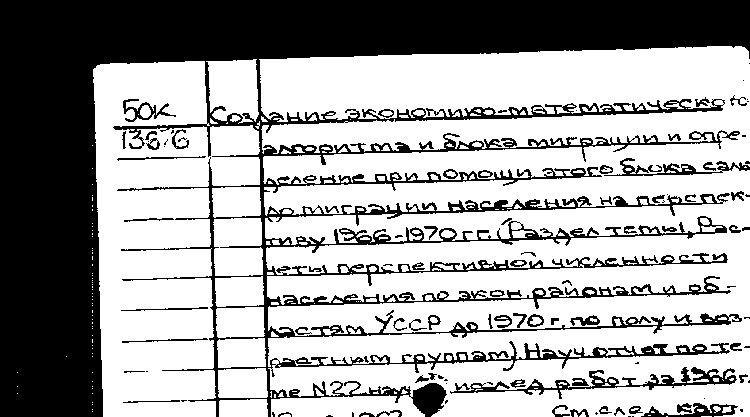 50К Создание экономико-математическо
13676 алгоритма и блока миграции и опре-
деление при помощи этого блока саль
до миграции населения на перспек-
тиву 1966-1970 гг. (Раздел темы „Рас-
четы перспективной численности
населения по экон. районам и об-
ластям УССР до 1970 г. по полу и воз-
растным группам). Науч. отчет по те-
ме N22 науч исслед работ за 1966 г.
См. след. карт.